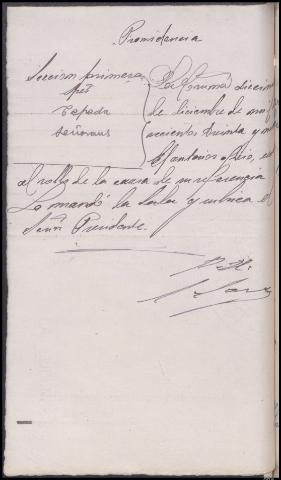 Providencia
Seccion primera
Tejada
Señorans
La Coruña diecin
de diciembre de mil
vecientos treinta y
El anterior oficio,
al rollo de la causa de su referencia
Lo mandó la Sala y rubrica el
Señor Presidente.